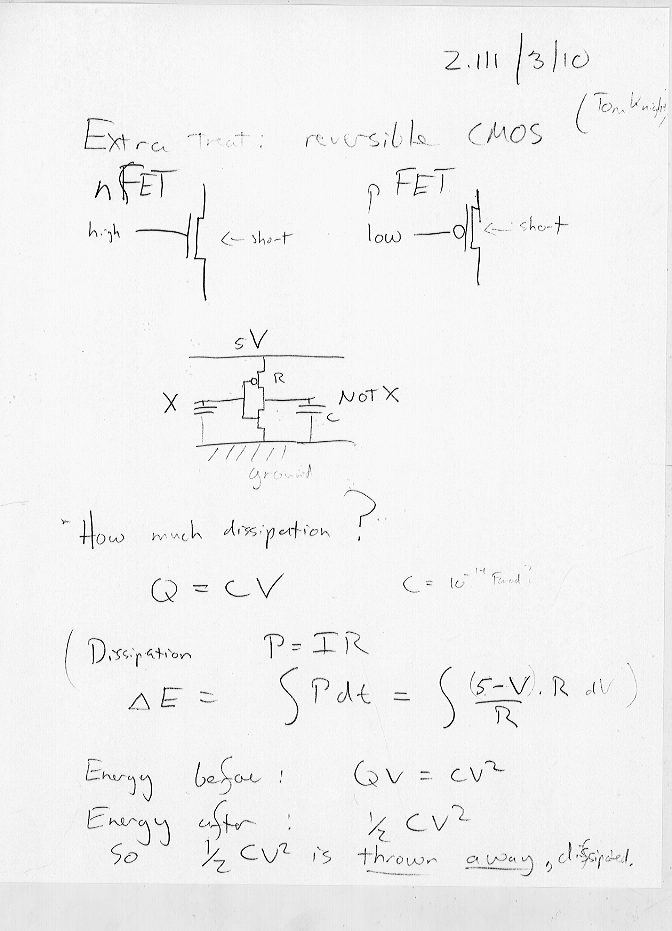 2.111/3/10
(Tom Knight)
Extra treat: reversible CMOS
nFET pFET
high ← short low ← short
5V
R
X NOT X
C
ground
How much dissipation?
Q = CV C = 10^-14 Farad
(Dissipation P = IR
ΔE = ∫ P dt = ∫ (5-V)/R · R dV)
Energy before: QV = CV²
Energy after: ½ CV²
So ½ CV² is thrown away, dissipated.